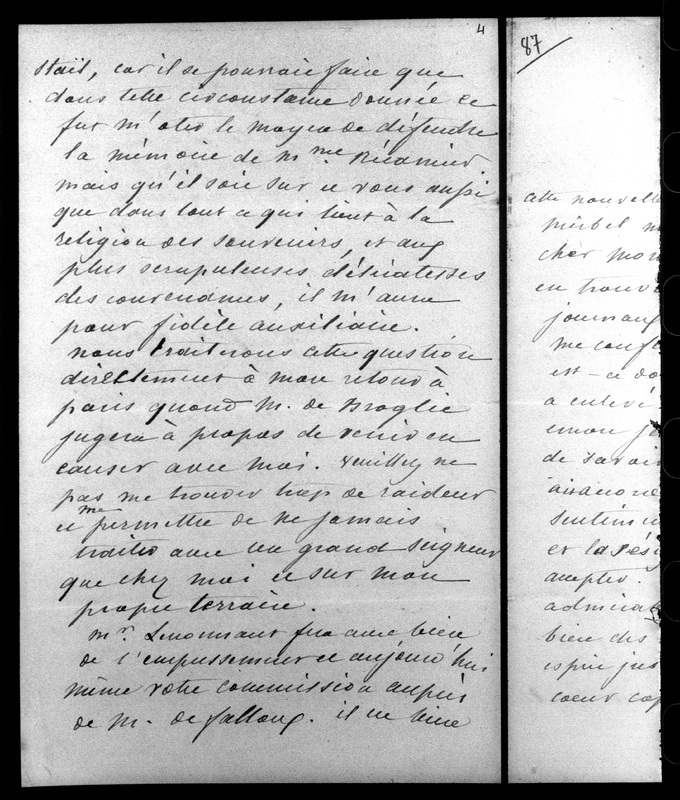 4
Staël, car il se pourrait faire que
dans telle circonstance donnée ce
fut m'oter le moyen de défendre
la mémoire de mme Récamier.
mais qu'il soit sur et vous aussi
que dans tout ce qui tient à la
religion des souvenirs, et aux
plus scrupuleuses délicatesses
des convenances, il m'aura
pour fidèle auxiliaire.
nous traiterons cette question
directement à mon retour à
paris quand M. de Broglie
jugera à propos de venir en
causer avec moi. veuillez ne
pas me trouver trop de raideur
et me permettre de ne jamais
traiter avec un grand seigneur
que chez moi et sur mon
propre terrain.
mr. Lenormant fera avec bien
de l'empressement et aujourd'hui
même votre commission auprès
de M. de falloux. il ne tient
87
cette nouvelle
mirbel
cher mon
en trouv
journaux
me conf
est-ce do
a enlevé
de savoi
sentim
et la rési
accepter.
admira
bien des
esprit jus
coeur cap